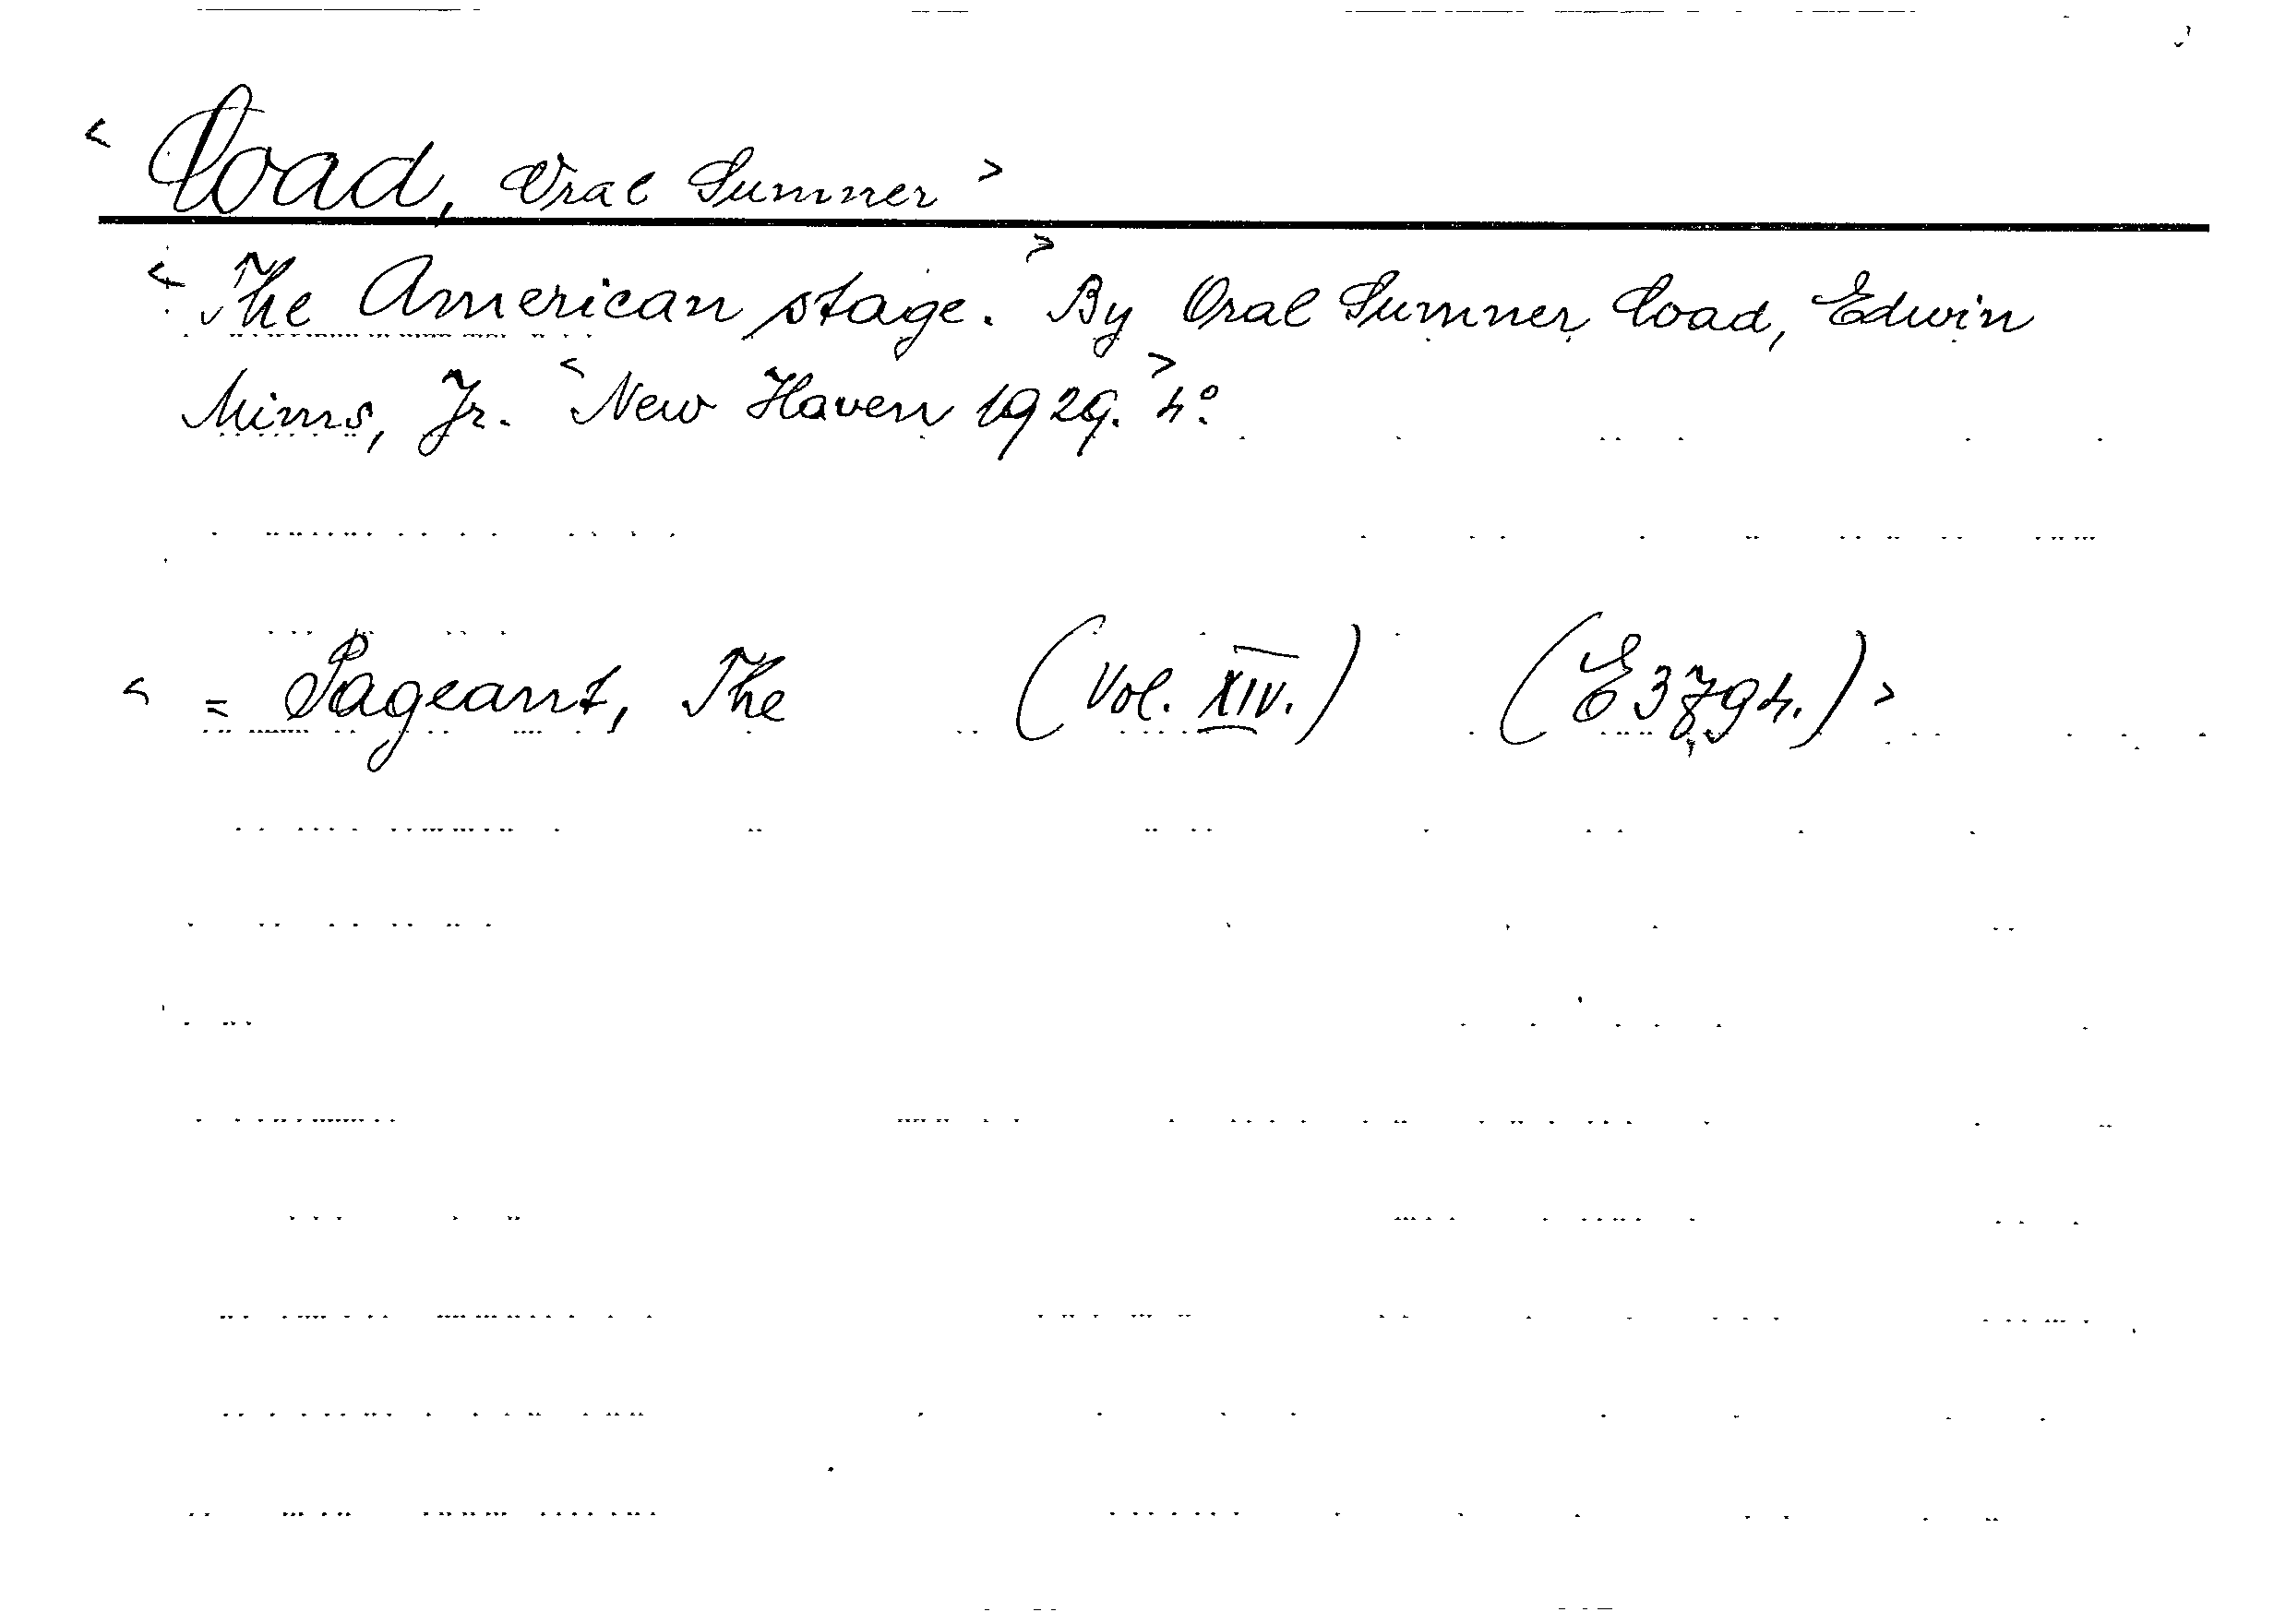 < Coad, Oral Sumner >
< The American stage. > By Oral Sumner Coad, Edwin
Mims, Jr. < New Haven 1929. > 4°
< = Pageant, The (Vol. XIV.) (E3794.) >